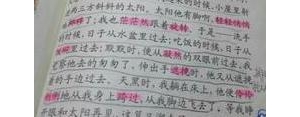 两三方斜斜的太阳。太阳他有脚啊，轻轻悄悄
了；我也茫茫然跟着旋转。于是——洗手
的时候，日子从水盆里过去；吃饭的时候，日子从
过去；默默时，便从凝然的双眼前过去。我
觉察他去的匆匆了，伸出手遮挽时，他又从遮挽
着的手边过去。天黑时，我躺在床上，他便伶伶
地从我身上跨过，从我脚边飞去了。等我睁
开眼和太阳再见